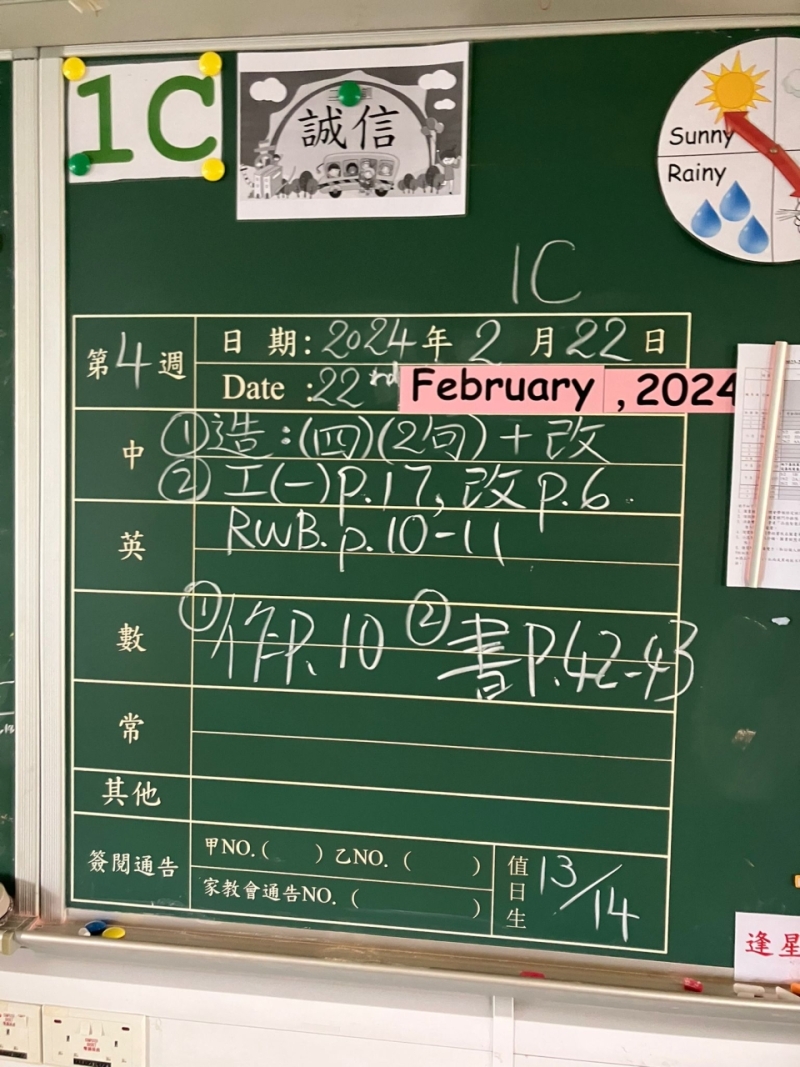 1C
誠信
Sunny
Rainy
1C
第4週
日 期: 2024年 2 月 22 日
Date :22 rd February , 2024
中
① 造:(四)(2句)+改
② 工(一)p.17, 改p.6.
英
RWB. p.10-11
數
① 作P. 10 ② 書P.42-43
常
其他
簽閱通告
甲NO.( ) 乙NO. ( )
家教會通告NO. ( )
值日生
13/14
逢星